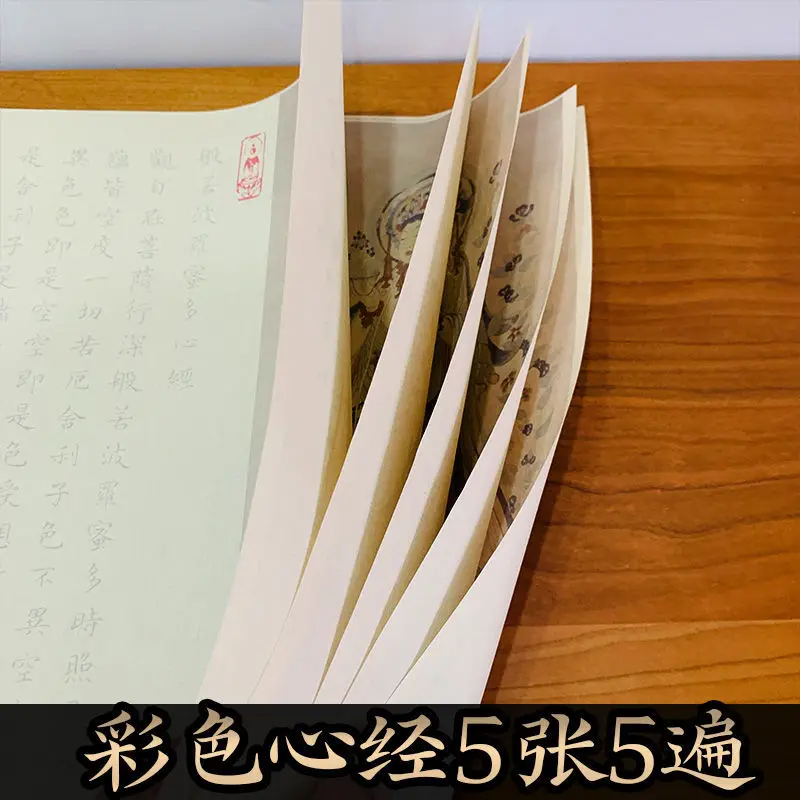 般若波羅蜜多心經
觀自在菩薩行深般若波羅蜜多時照
蘊皆空度一切苦厄舍利子色不異空
異色色即是空空即是色受想
是舍利子是諸
彩色心经5张5遍